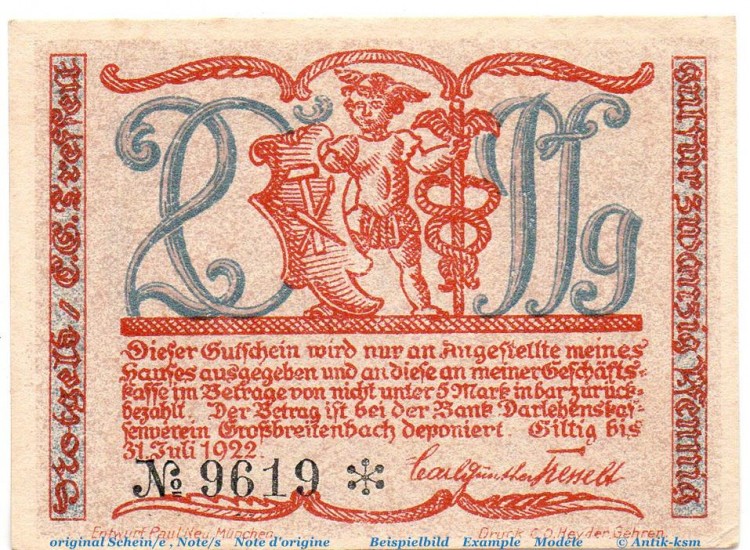 Notgeld / C.G. Tresselt
20 Pfg
Gut für Zwanzig Pfennig
Dieser Gutschein wird nur an Angestellte meines
Hauses ausgegeben und an diese an meiner Geschäfts-
kasse im Betrage von nicht unter 5 Mark in bar zurück-
bezahlt. Der Betrag ist bei der Bank Darlehenskas-
senverein Großbreitenbach deponiert. Giltig bis
31. Juli 1922.
№ 9619 *
Carl Günther Tresselt
Entwurf Paul Neu, München
Druck C.O. Heyder Gehren
original Schein/e , Note/s Note d'origine Beispielbild Example Modèle © Antik-ksm